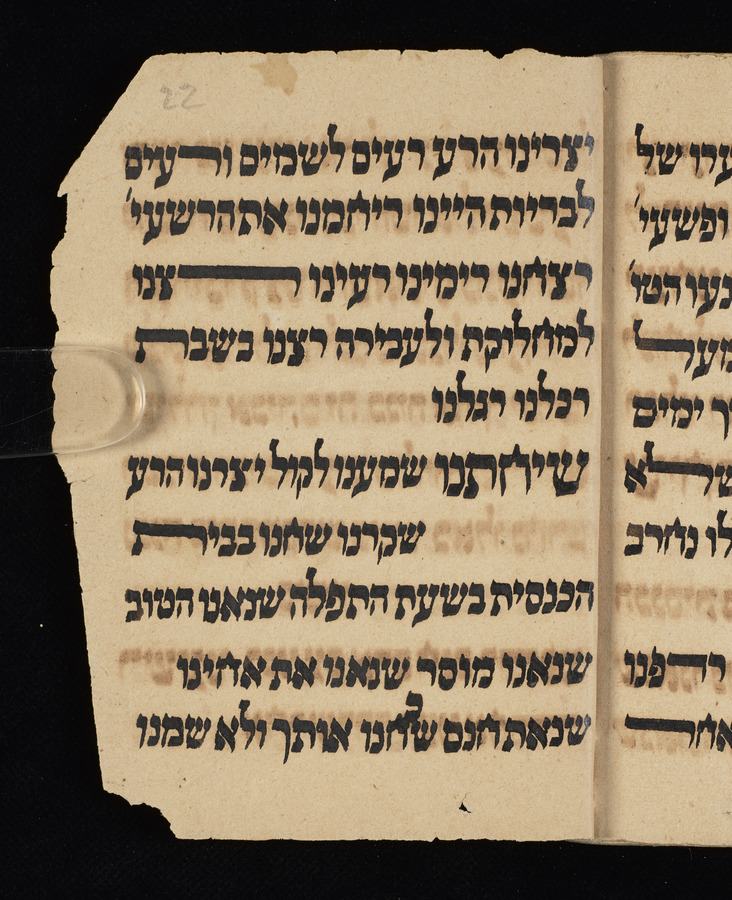 יצרינו הרע רעים לשמים ורעים
לבריות היינו ריחמנו את הרשעי'
רצחנו רימינו רעינו רצנו
למחליקת ולעבירה רצנו בשבת
רכלנו רגלנו
שיחתנו שמענו לקול יצרנו הרע
שקרנו שחנו בבית
הכנסית בשעת התפלה שנאנו הטוב
שנאנו מוסר שנאנו את אחינו
שנאת חנם שכחנו אותך ולא שמנו
ערו של
ופשעי'
נעו הטו'
ך ימים
לו נחרב